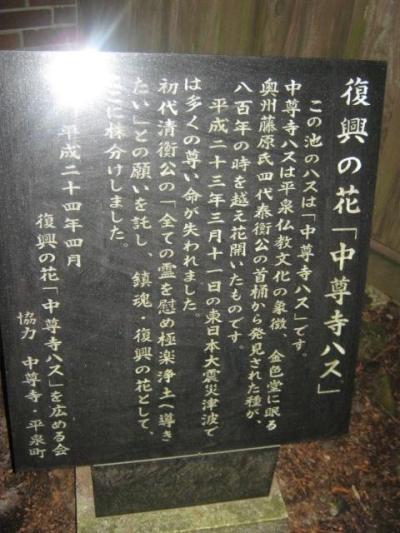 復興の花「中尊寺ハス」
この池のハスは「中尊寺ハス」です。
中尊寺ハスは平泉仏教文化の象徴、金色堂に眠る
奥州藤原氏四代泰衡公の首桶から発見された種が、
八百年の時を越え花開いたものです。
平成二十三年三月十一日の東日本大震災津波で
は多くの尊い命が失われました。
初代清衡公の「全ての霊を慰め極楽浄土へ導き
たい」との願いを託し、鎮魂・復興の花として、
ここに株分けしました。
平成二十四年四月
復興の花「中尊寺ハス」を広める会
協力 中尊寺・平泉町